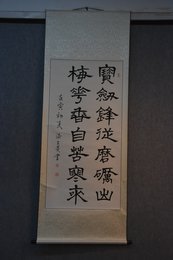 寶劍鋒従磨礪出
梅花香自苦寒來